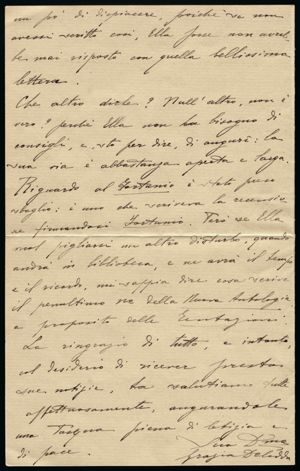 un pò di dispiacere, poichè se non
avessi scritto così, Ella forse non avreb-
be mai risposto con quella bellissima
lettera.
Che altro dirle? Null'altro, non è
vero? perchè Ella non ha bisogno di
consigli, e, sto per dire, di auguri: la
sua via è abbastanza aperta e larga.
Riguardo al Fortunio è stato preso
sbaglio: è uno che scriveva la recensio-
ne firmandosi Fortunio. Però se Ella
vuol pigliarsi un altro disturbo, quando
andrà in biblioteca, e ne avrà il tempo
e il ricordo, mi sappia dire cosa scrive
il penultimo no della Nuova Antologia
a proposito delle Tentazioni.
La ringrazio di tutto, e intanto,
col desiderio di ricever presto
sue notizie, la salutiamo tutti
affettuosamente, augurandole
una Pasqua piena di letizia e
di pace.
Sua Dma
Grazia Deledda